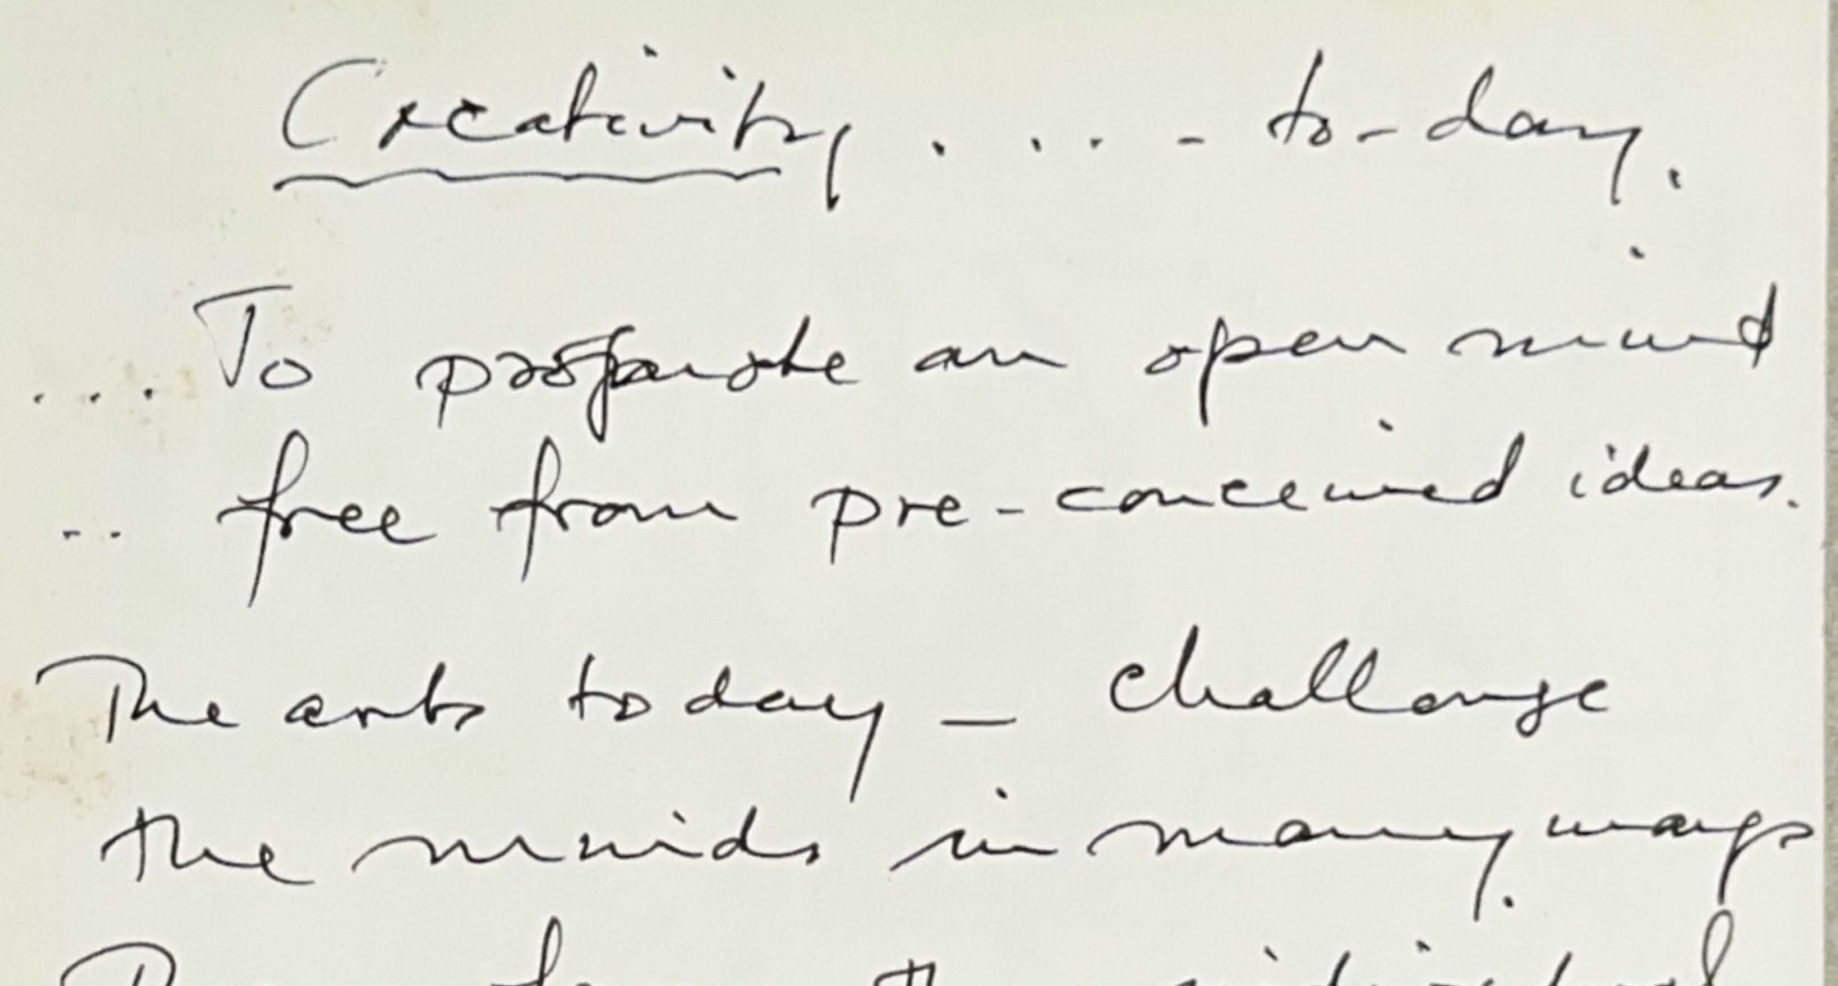 Creativity . . . - to-day.
... To propagate an open mind
.. free from pre-conceived ideas.
The arts today - challenge
the minds in many ways